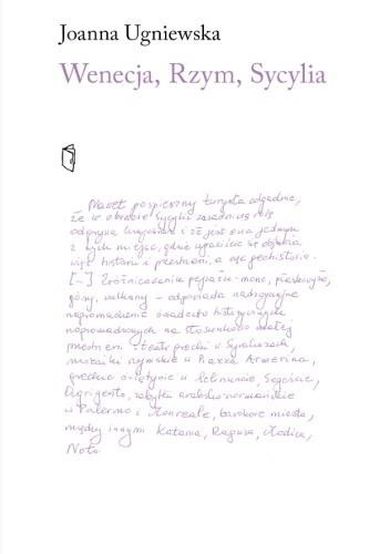 Joanna Ugniewska
Wenecja, Rzym, Sycylia
Nawet pospieszny turysta odgadnie,
że w obrazie Sycylii zasadniczą rolę
odgrywa krajobraz i że jest ona jednym
z tych miejsc, gdzie ujawnia się
więź historii i przestrzeni, a więc geohistoria.
[...] Zróżnicowanie pejzażu - morze, płaskowyże,
góry, wulkany - odpowiada
nagromadzenie świadectw historycznych
na stosunkowo małej
przestrzeni - teatr grecki w Syrakuzach,
mozaiki rzymskie w Piazza Armerina,
greckie świątynie w Selinuncie, Segeście,
Agrigento, zabytki arabsko-normandzkie
w Palermo i Monreale, barokowe miasta,
między innymi Katania, Ragusa, Modica,
Noto